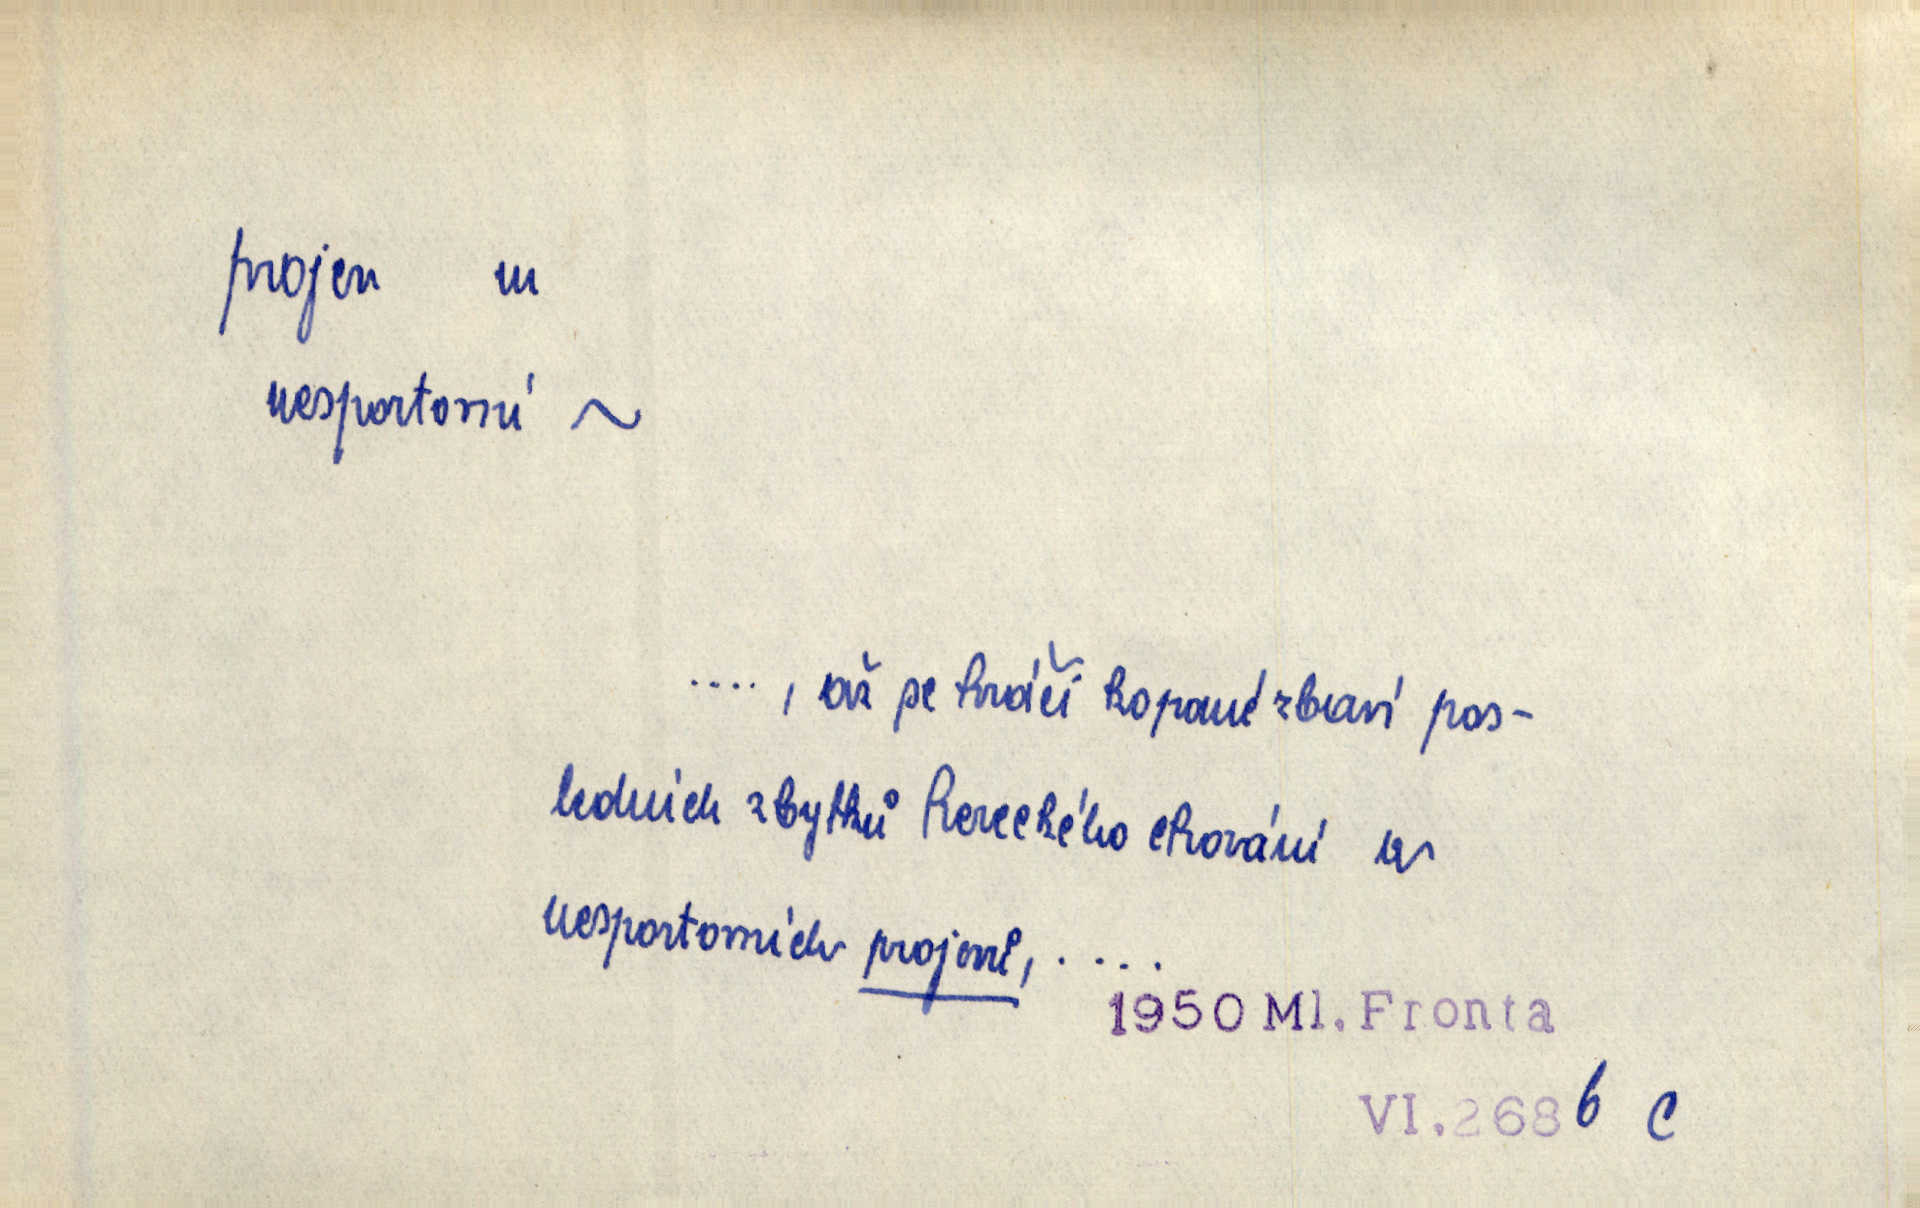 projev m
nesportovní ~
...., až se hráči kopané zbaví pos-
ledních zbytků hereckého chování a
nesportovních projevů, ....
1950 Ml. Fronta
VI. 268 b c